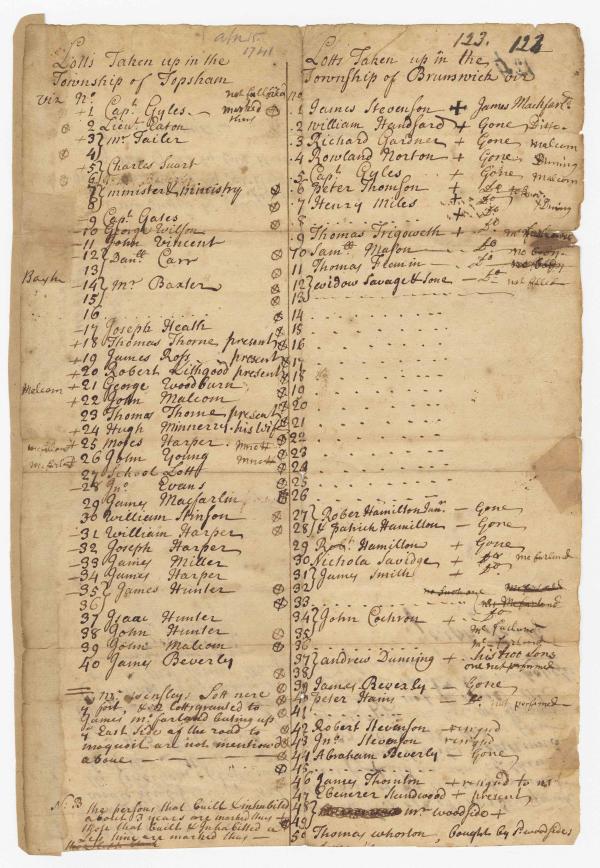 apr 15 1741
123. 122
Lotts Taken up in the
Township of Topsham
viz No
not
marked
thus
+ 1 Capt Gyles
2 Lieut Eaton
+ 3 Mr Tailer
4
+ 5 Charles Stuart
6
7 minister & ministry
8
– 9 Capt Gates
– 10 George Wilson
– 11 John Vincent
12 Danll Carr
13
Baxter – 14 Mr Baxter
15
16
– 17 Joseph Heath
+ 18 Thomas Thorne present
+ 19 James Ross present
+ 20 Robert Lithgood present
+ 21 George Woodburn
Malcom + 22 John Malcom
23 Thomas Thorne present
+ 24 Hugh Minnerry his wife
+ 25 Moses Harper
26 John Young
27 School Lott
– 28 Jno Evans
29 James Macfarlin
30 William Stinson
– 31 William Harper
– 32 Joseph Harper
– 33 James Miller
– 34 James Harper
– 35 James Hunter
36
37 Isaac Hunter
38 John Hunter
39 John Malcom
40 James Beverly
Mr Lott nere
y fort, & 2 Lotts graused to
James mcfarland butting upp
y East side of the road to
maquoit are not mentioned
above
N. B the persons that built & inhabited
about 3 years are marked thus +
those that built & inhabitted a
Less time are marked thus –
Lotts Taken up in the
Township of Brunswick viz
no
1 James Stevenson + James Mackfarl
2 William Handsard + Gone
3 Richard Gardner + Gone malcom
4 Rowland Norton + Gone Duning
5 Capt Gyles + Gone malcom
6 Peter Thomson + Do
7 Henry Miles + Do Duning
8 + Do
9 Thomas Trigoweth + Do
10 Samll Mason – Do
11 Thomas Flemin – Do
12 widow Savage & sone – Do
13
14
15
16
17
18
19
20
21
22
23
24
25
26
27 Rober Hamilton Junr – Gone
28 & Patrick Hamilton – Gone
29 Robt Hamilton + Gone
30 Nichola Savidge + Do mc farland
31 James Smith + Do
32
33
34 John Cochron + Do
35 mc farland
36 mc farland
37 andrew Dunning + his two sons
38 one not performed
39 James Beverly – Gone
40 peter Hams – Do not performed
41
42 Robert Stevenson – resignd
43 Jno Stevenson resignd
44 Abraham Beverly – Gone
45
46 James Thornton + resignd to us
47 Ebenezer Standwood + present
48 mr woodside +
49
50 Thomas whorton, bought by Jas woodside